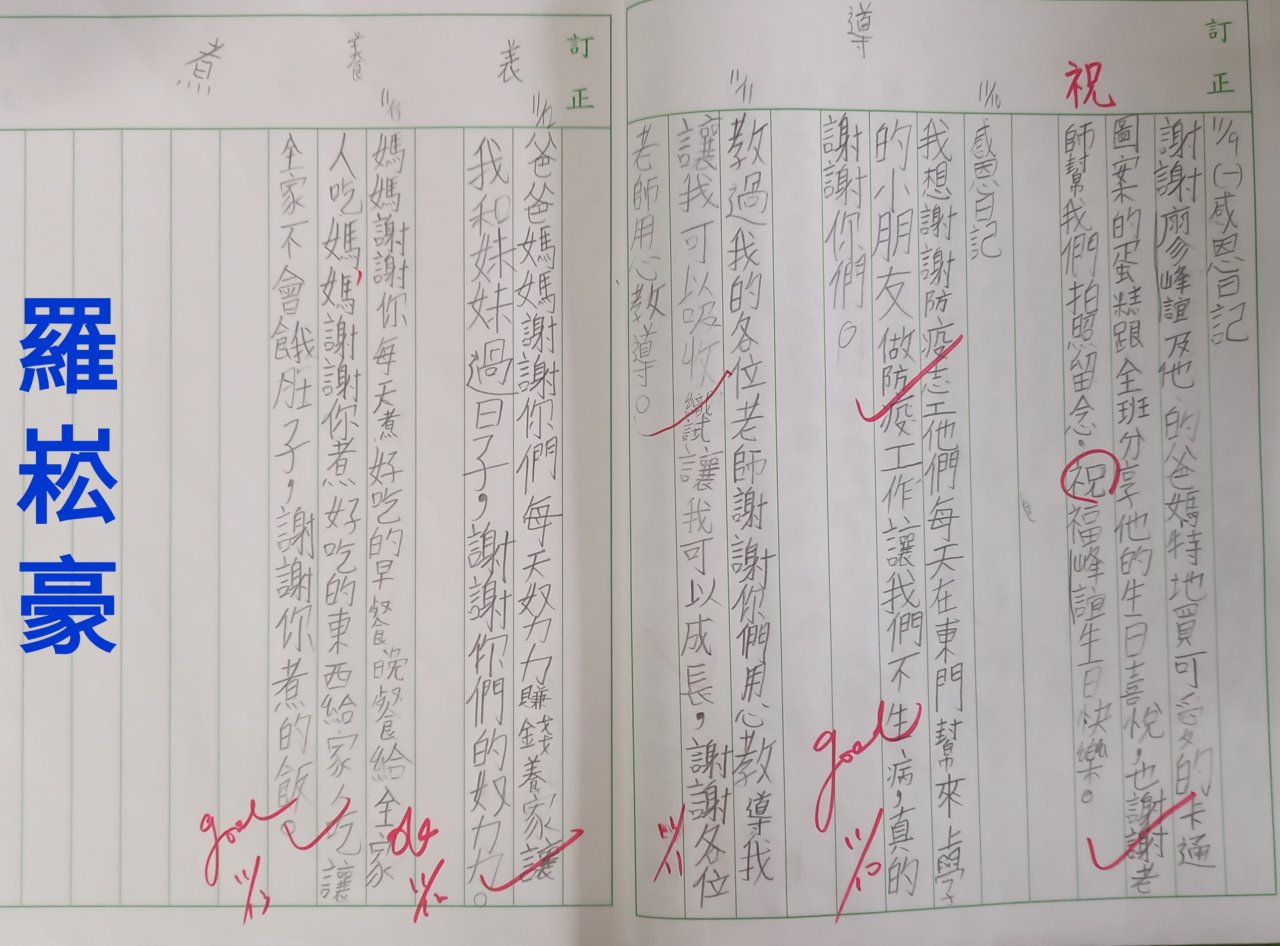 訂正
祝
11/9(一)感恩日記
謝謝廖峰誼及他的爸媽特地買可愛的卡通
圖案的蛋糕跟全班分享他的生日喜悅,也謝謝老
師幫我們拍照留念。祝福峰誼生日快樂。
導
11/10
感恩日記
我想謝謝防疫志工他們每天在東門幫來上學
的小朋友做防疫工作讓我們不生病,真的
謝謝你們。
good
11/10
11/11
教過我的各位老師謝謝你們用心教導我
讓我可以吸收讓我可以成長,謝謝各位
老師用心教導。
11/11
訂正
11/12
爸爸媽媽謝謝你們每天奴力力賺錢養家讓
我和妹妹過日子,謝謝你們的奴力力。
11/12
養
11/13
媽媽謝謝你每天煮好吃的早餐晚餐給全家
人吃媽媽,謝謝你煮好吃的東西給家人吃讓
全家不會餓肚子,謝謝你煮的飯。
good
11/13
煮
羅崧豪